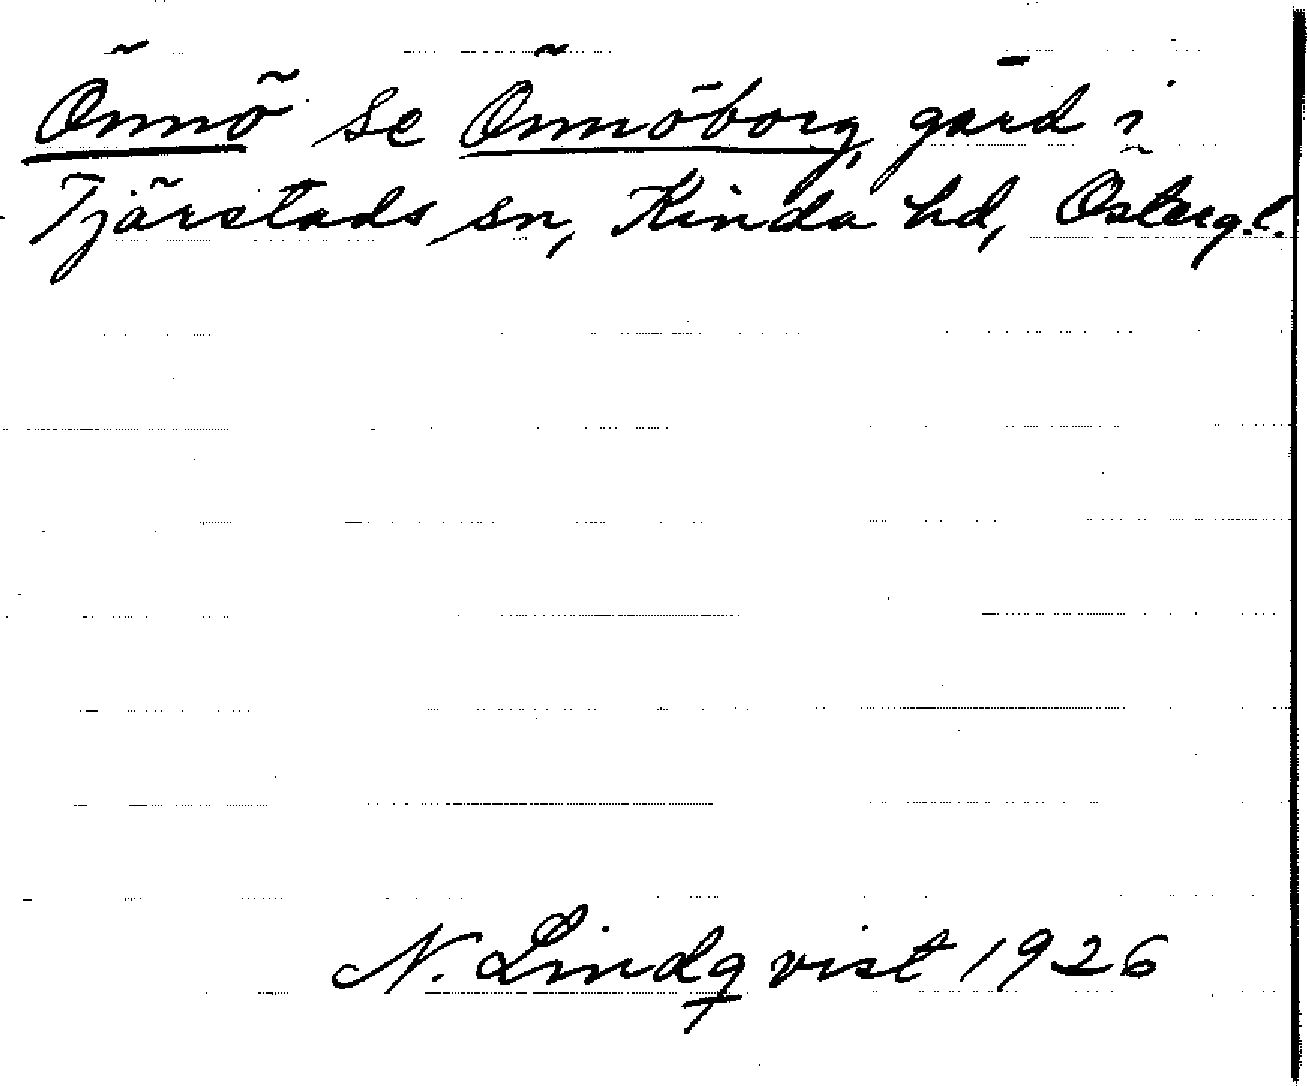 Önnö se Önnöborg, gård i
Tjärstads sn, Kinda hd, Österg.l.
N. Lindqvist 1926